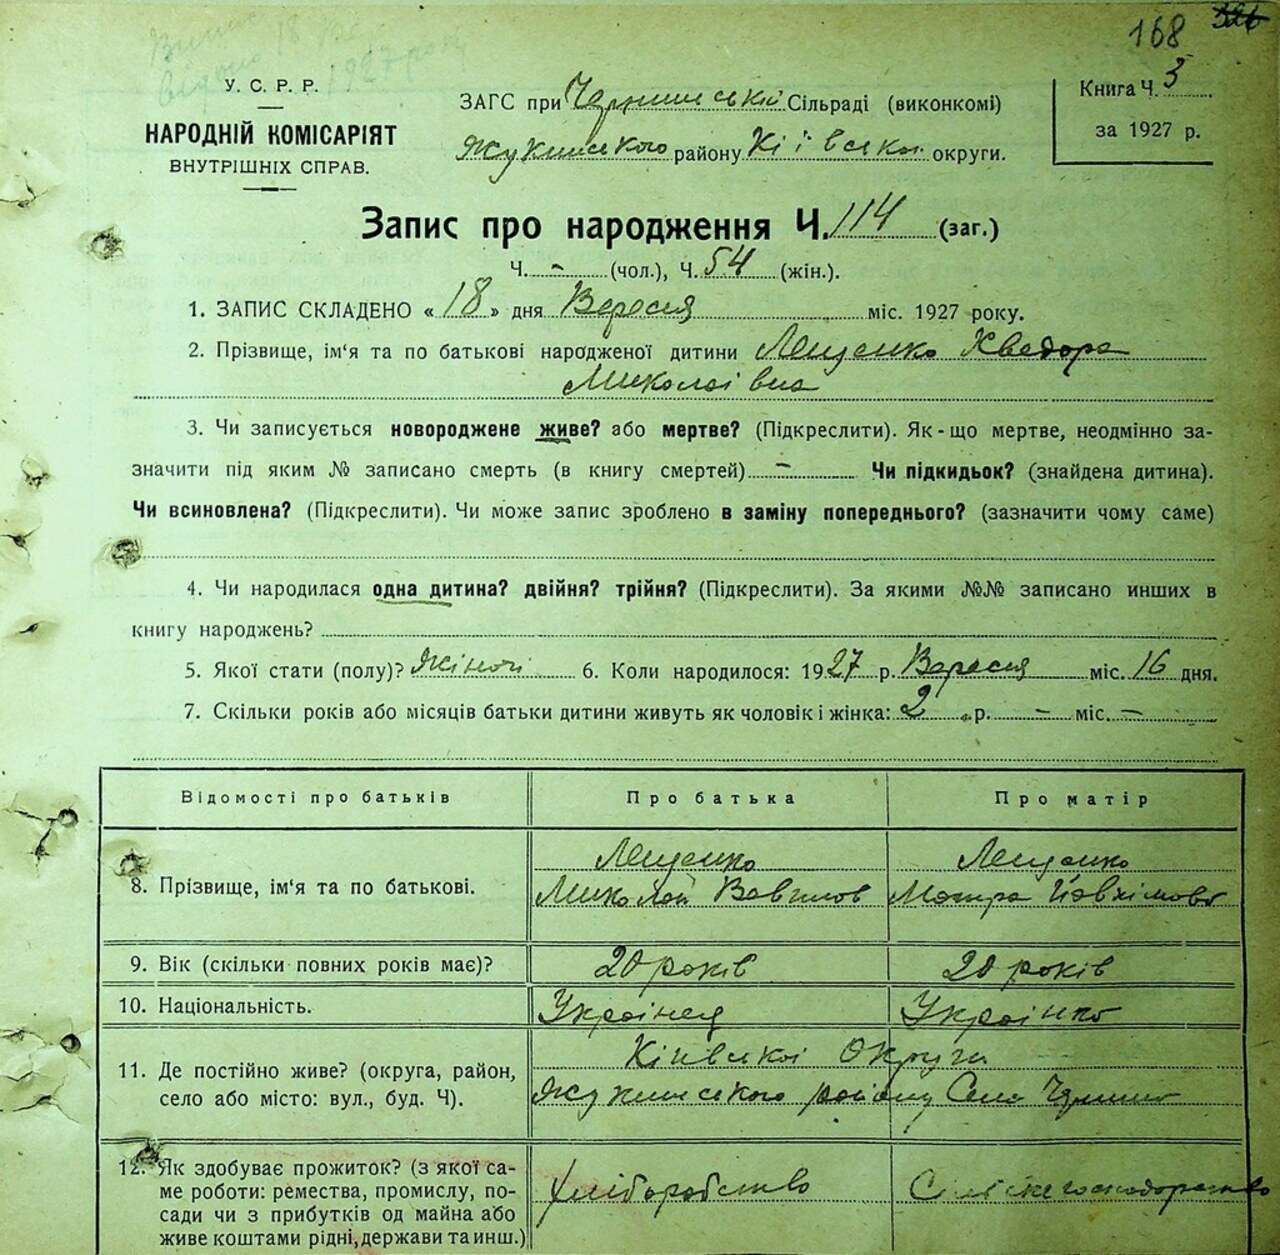 168 326
У. С. Р. Р.
НАРОДНІЙ КОМІСАРІЯТ
ВНУТРІШНІХ СПРАВ.
ЗАГС при Чернинській Сільраді (виконкомі)
Жукинського району Київської округи.
Книга Ч. 3
за 1927 р.
Запис про народження Ч. 114 (заг.)
Ч. - (чол.), Ч. 54 (жін.).
1. ЗАПИС СКЛАДЕНО « 18 » дня Вересня міс. 1927 року.
2. Прізвище, ім'я та по батькові народженої дитини Лещенко Хведора
Миколаівна
3. Чи записується новороджене живе? або мертве? (Підкреслити). Як-що мертве, неодмінно за-
значити під яким № записано смерть (в книгу смертей) - Чи підкидьок? (знайдена дитина).
Чи всиновлена? (Підкреслити). Чи може запис зроблено в заміну попереднього? (зазначити чому саме)
4. Чи народилася одна дитина? двійня? трійня? (Підкреслити). За якими №№ записано инших в
книгу народжень?
5. Якої стати (полу)? Жіночі 6. Коли народилося: 1927 р. Вересня міс. 16 дня.
7. Скільки років або місяців батьки дитини живуть як чоловік і жінка: 2 р. - міс. -
Відомості про батьків Про батька Про матір
8. Прізвище, ім'я та по батькові. Лещенко Лещенко
Миколай Вавилов Мотря Йовхімова
9. Вік (скільки повних років має)? 20 років 20 років
10. Національність. Украінец Украінка
11. Де постійно живе? (округа, район, село або місто: вул., буд. Ч). Киівскоі Округи
Жукинського району Село Чернин
12. Як здобуває прожиток? (з якої са-
ме роботи: ремества, промислу, по-
сади чи з прибутків од майна або
живе коштами рідні, держави та инш.)
хліборобство